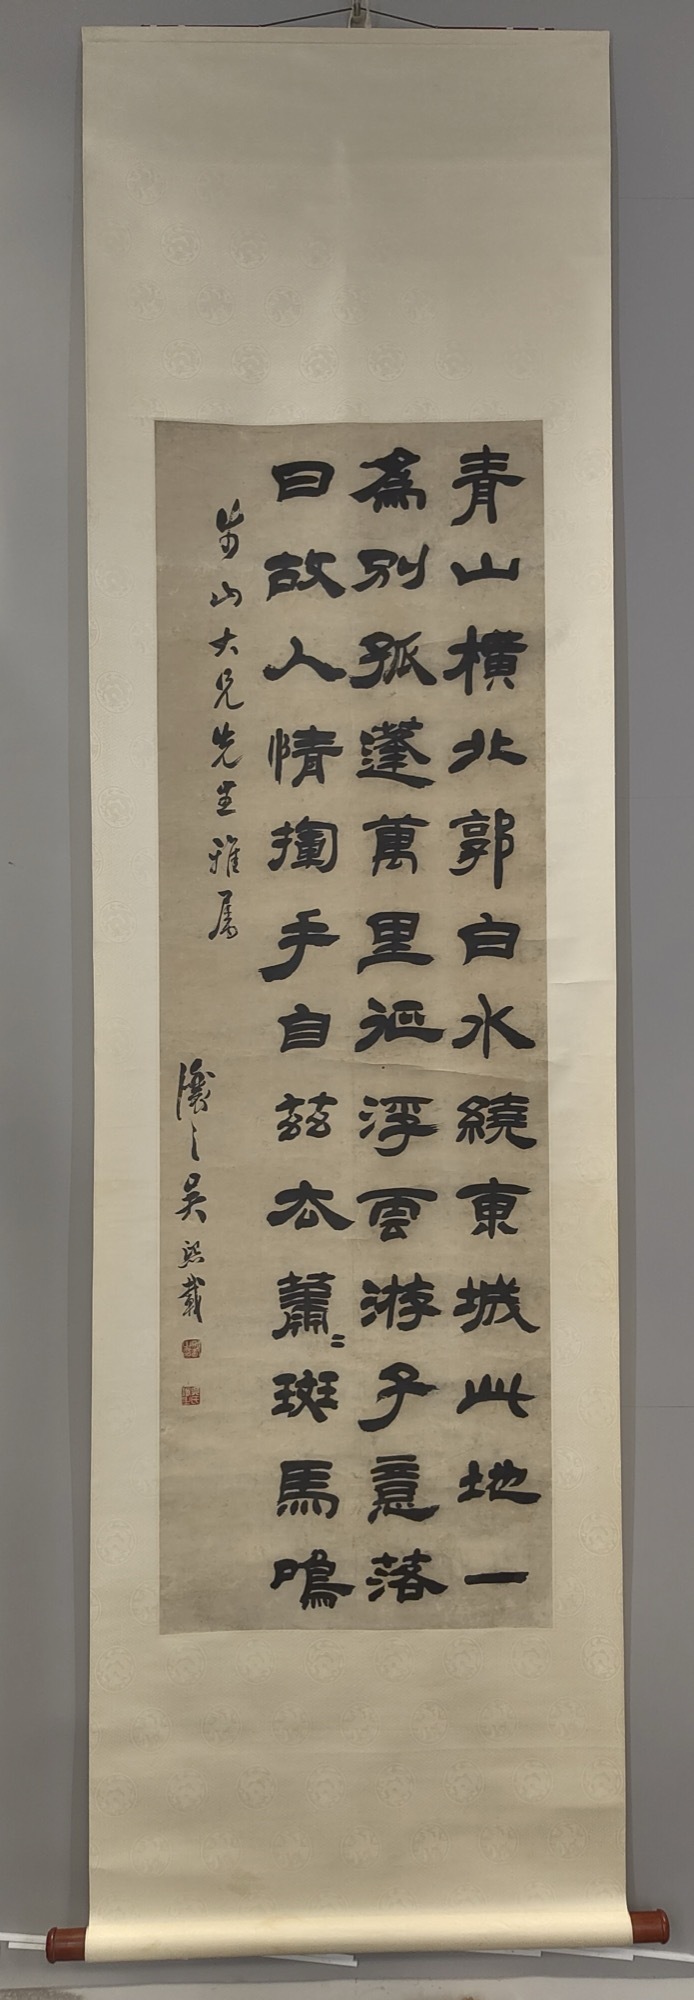 青山橫北郭白水繞東城此地一
為別孤蓬萬里征浮雲游子意落
日故人情揮手自茲去蕭〻斑馬鳴
山大兄先生雅属
讓之吳熙載